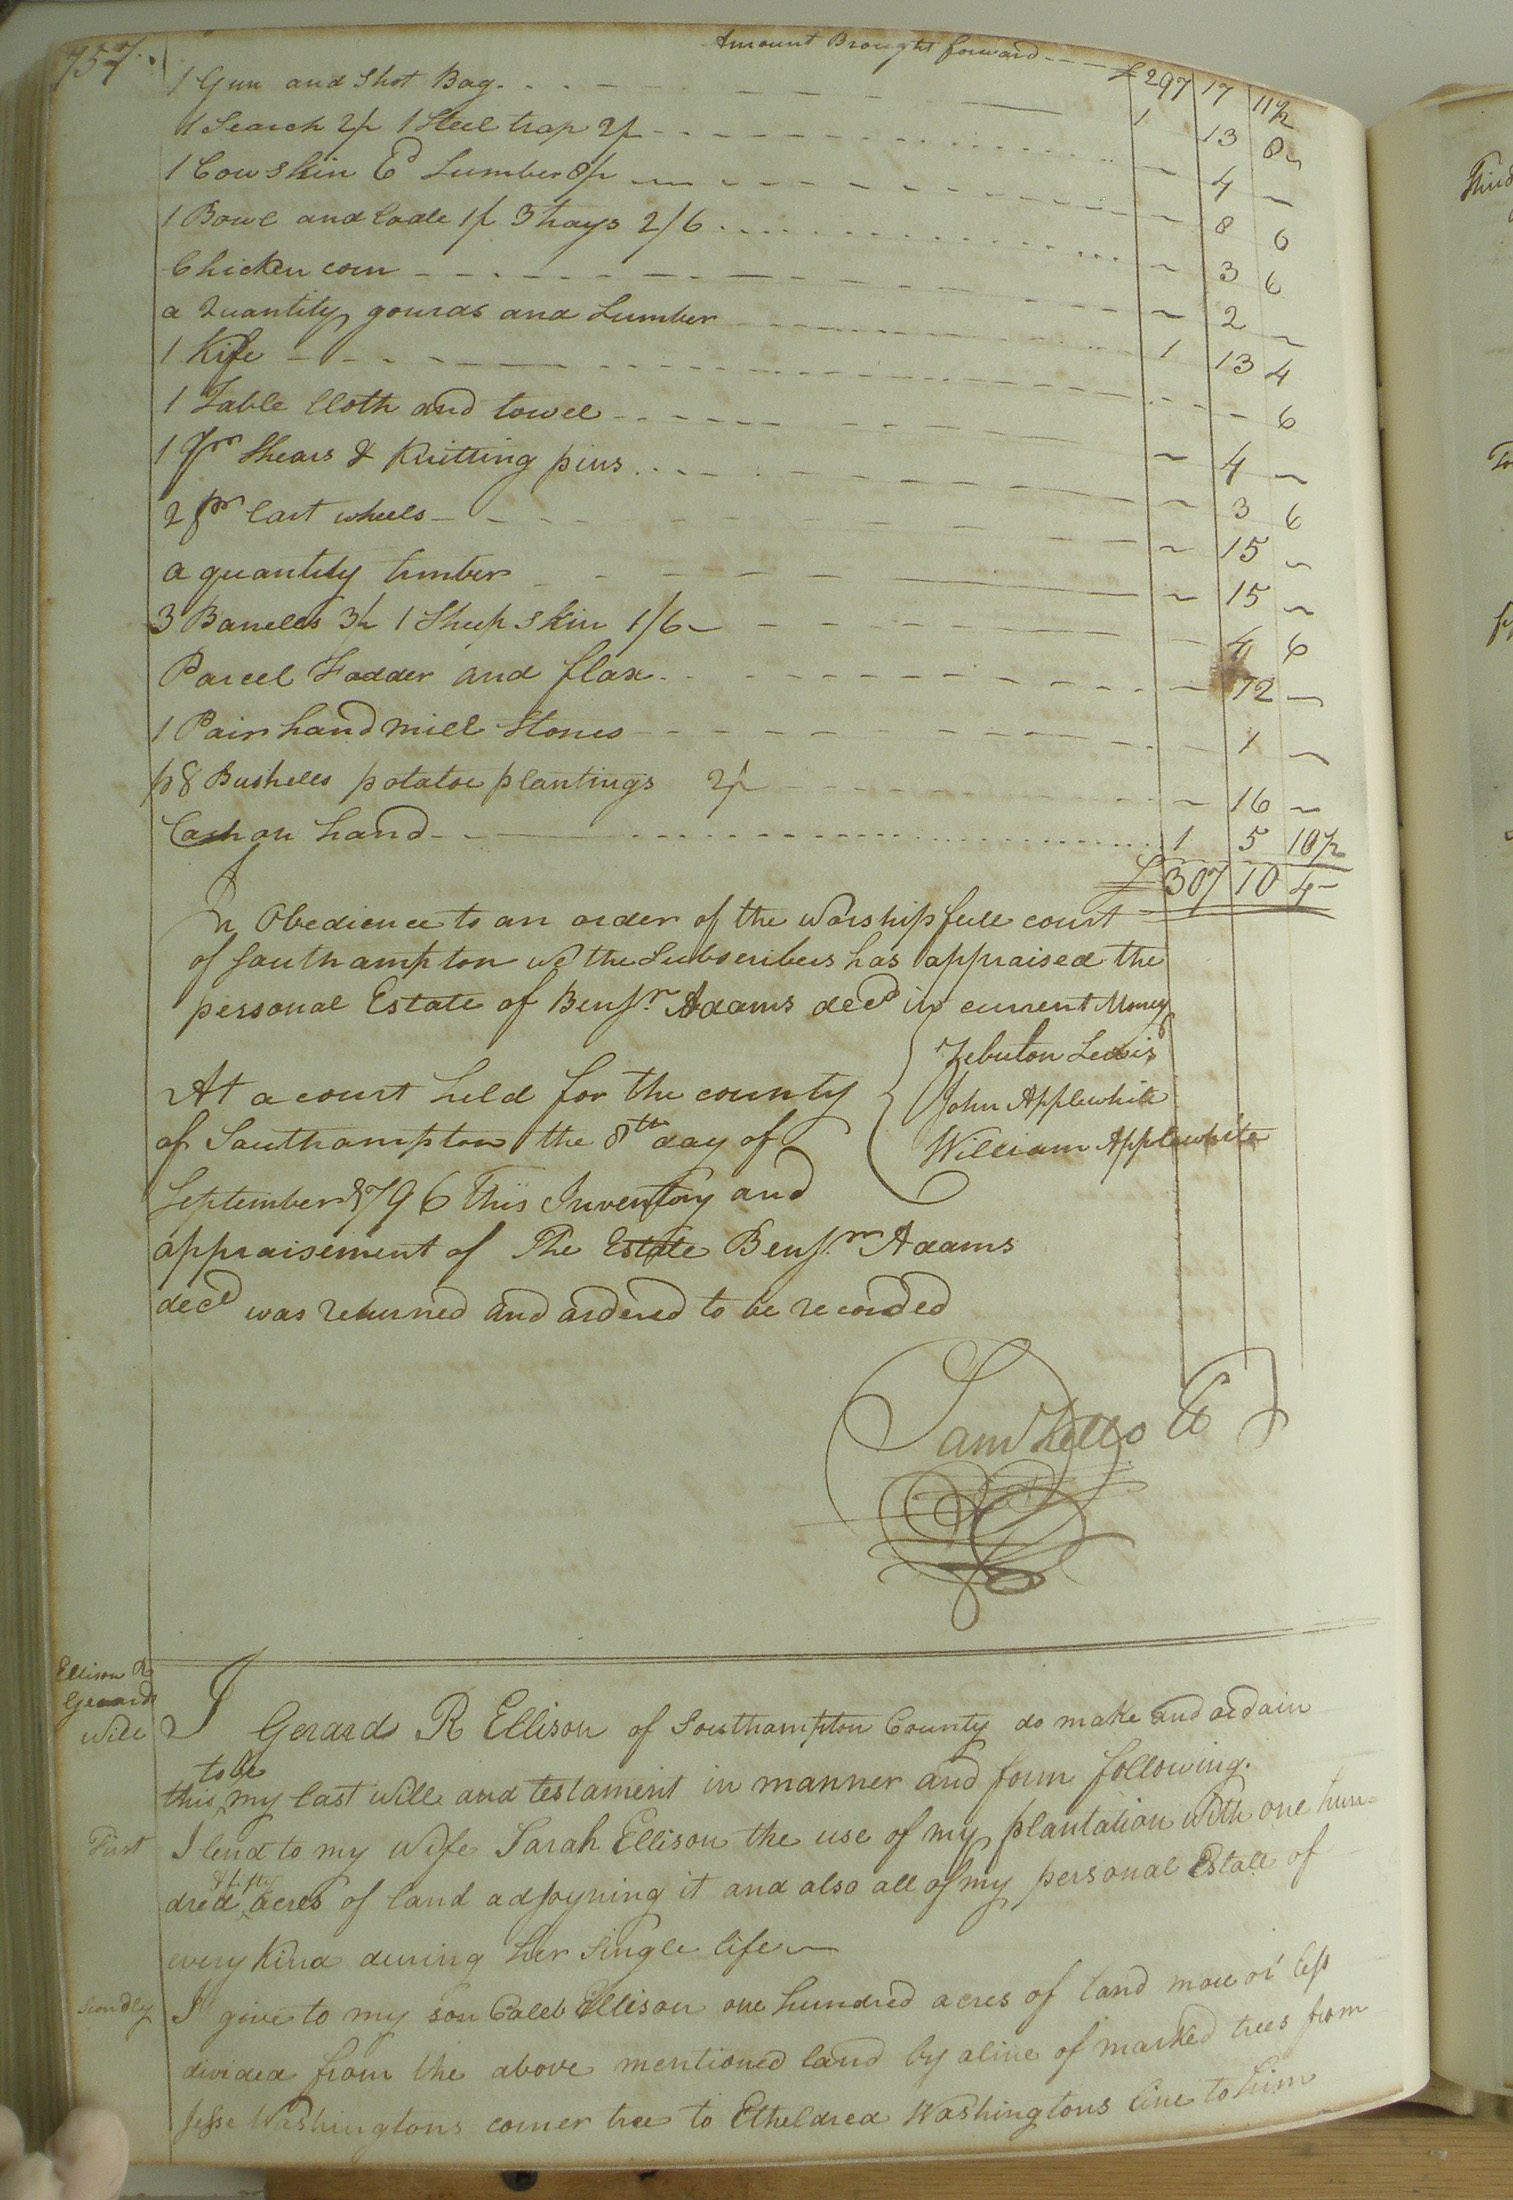 757
Amount Brought forward £ 297 17 11½
1 Gun and Shot Bag 1 13 0
1 Search 2/ 1 Steel trap 2/ 4
1 Cow Skin & Lumber 8/ 8 6
1 Bowl and Ladle 1/ 3 trays 2/6 3 6
Chicken corn 2
a Quantity gourds and Lumber 1 13 4
1 Kife 6
1 Table Cloth and towel 4
1 pr Shears & Knitting pins 3 6
2 pr Cart wheels 15
a quantity timber 15
3 Barrells 3/ 1 Sheep Skin 1/6 4 6
Parcel Fodder and flax 12
1 Pair hand mill Stones 1
p 8 Bushells potatoe plantings 2/ 16
Cash on hand 1 5 10½
£ 307 10 4
In Obedience to an order of the Worshipfull court
of Southampton we the Subscribers has appraised the
personal Estate of Benjn. Adams decd in current Money
Zebulon Lewis
John Applewhite
William Applewhite
At a court held for the county
of Southampton the 8th day of
September 1796 This Inventory and
appraisement of The Estate Benjn. Adams
decd was returned and ordered to be recorded
Saml Kello CC
Ellison R
Gerards
Will
I Gerard R Ellison of Southampton County do make and ordain
to be
this my last Will and testament in manner and form following.
First I lend to my Wife Sarah Ellison the use of my plantation with one hun=
& fifty
dred acres of land adjoyning it and also all of my personal Estate of
every Kind during her Single life
Secondly I give to my son Caleb Ellison one hundred acres of land more or less
divided from the above mentioned land by a line of marked trees from
Jesse Washingtons corner tree to Etheldred Washingtons line to him